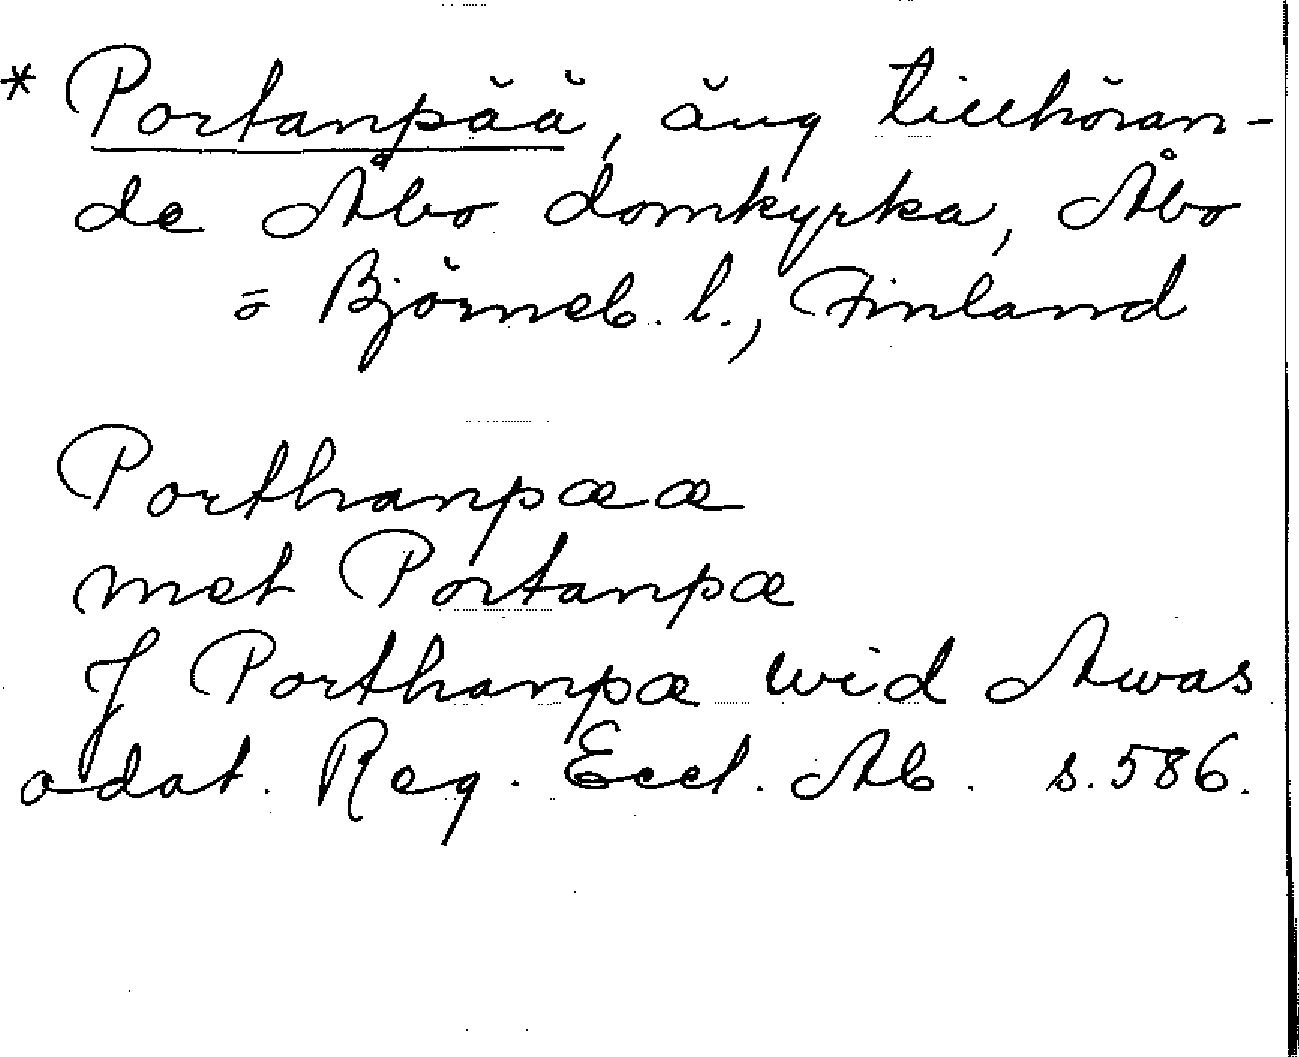 * Portanpää, äng tillhöran-
de Åbo domkyrka, Åbo
= Björneb. l., Finland
Porthanpææ
met Portanpæ
J Porthanpæ wid Awas
odat. Reg. Eccl. Ab. s. 586.